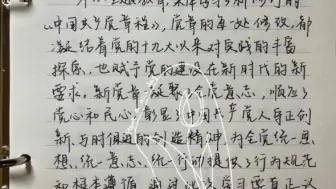 《中国共产党章程》,党章的每一处修改,都
凝结着党的十九大以来对反战的丰富
探索,也赋予党的建设在新时代的新
要求。新党章凝聚了全党意志,顺应了
党心和民心,彰显了中国共产党人守正创
新、与时俱进的创造精神,为全党统一思
想、统一意志、统一行动提供了行为规范
和根本遵循。